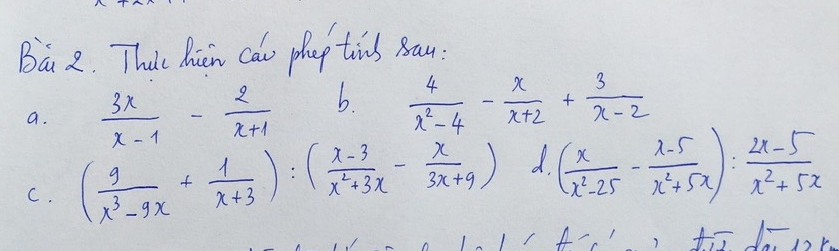 Bài 2. Thực hiện các phép tính sau:
a. 3x/(x-1) - 2/(x+1) b. 4/(x²-4) - x/(x+2) + 3/(x-2)
c. (9/(x³-9x) + 1/(x+3)) : ((x-3)/(x²+3x) - x/(3x+9)) d. (x/(x²-25) - (x-5)/(x²+5x)) : (2x-5)/(x²+5x)